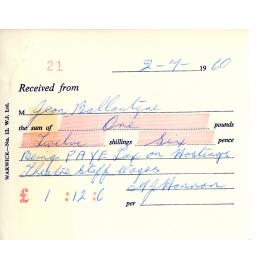 21
2-7-1960
Received from
M Jean Ballantyne
the sum of One pounds
Twelve shillings Six pence
Being PAYE Tax on Hastings
Theatre Staff Wages
£ 1 : 12 : 6
per Hannan
WARWICK—No. 12. W.J. Ltd.